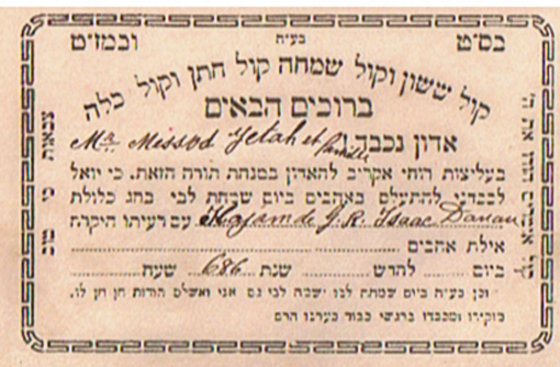 בס״ט
בע״ה
ובמז״ט
קול ששון וקול שמחה קול חתן וקול כלה
ברוכים הבאים
אדון נכבד
Mr. Messod Yetah et famille
בעליצות רוחי אקריב להאדון במנחת תודה הזאת. כי יואל
לכבדני להתעלס באהבים ביום שמחת לבי בחג כלולת
de J. R. Isaac Danan עם רעיתו היקרה
אילת אהבים
ביום לחדש שנת 686 שעה
וכן בע״ה ביום שמחת לבו ישמח לבי גם אני ואשלם תודות חן חן לו.
מוקירו ומכבדו ברגשי כבוד כערכו הרם
צבאות כי טוב
קול אומרים הודו את ה׳